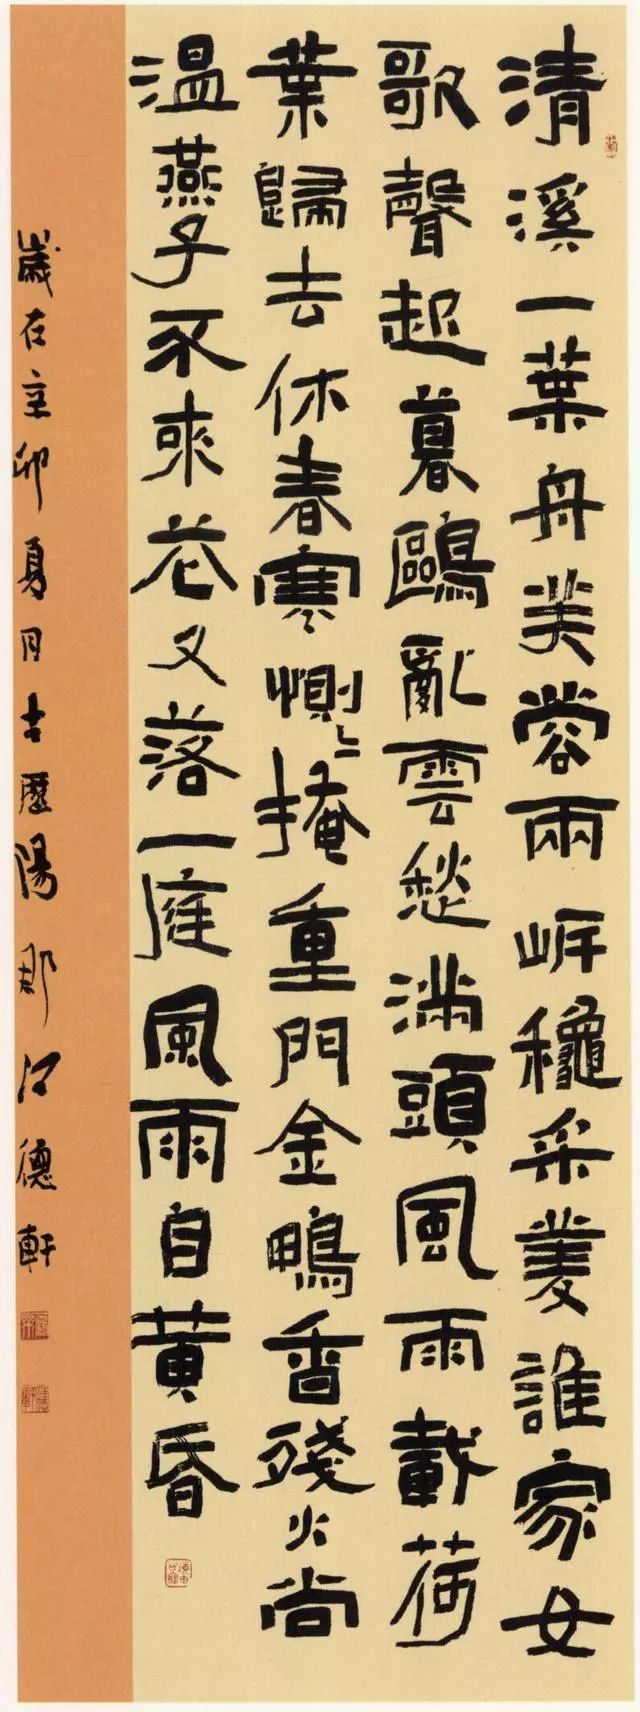 清溪一葉舟芙蓉兩岸龝采菱誰家女
歌聲起暮鷗亂雲愁滿頭風雨戴荷
葉歸去休春寒惻〻掩重門金鴨香殘火尚
溫燕子不來花又落一庭風雨自黃昏
歲在辛卯夏月古歷陽郡江德軒